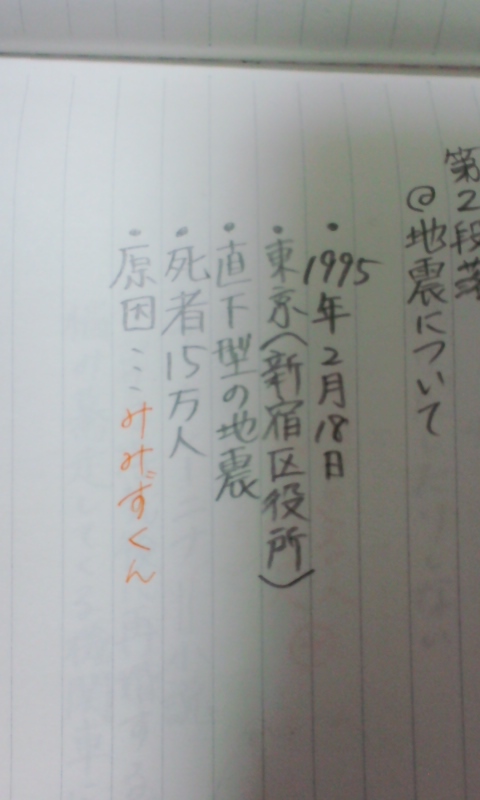 第2段落
@地震について
・1995年2月18日
・東京(新宿区役所)
・直下型の地震
・死者15万人
・原因…みみずくん